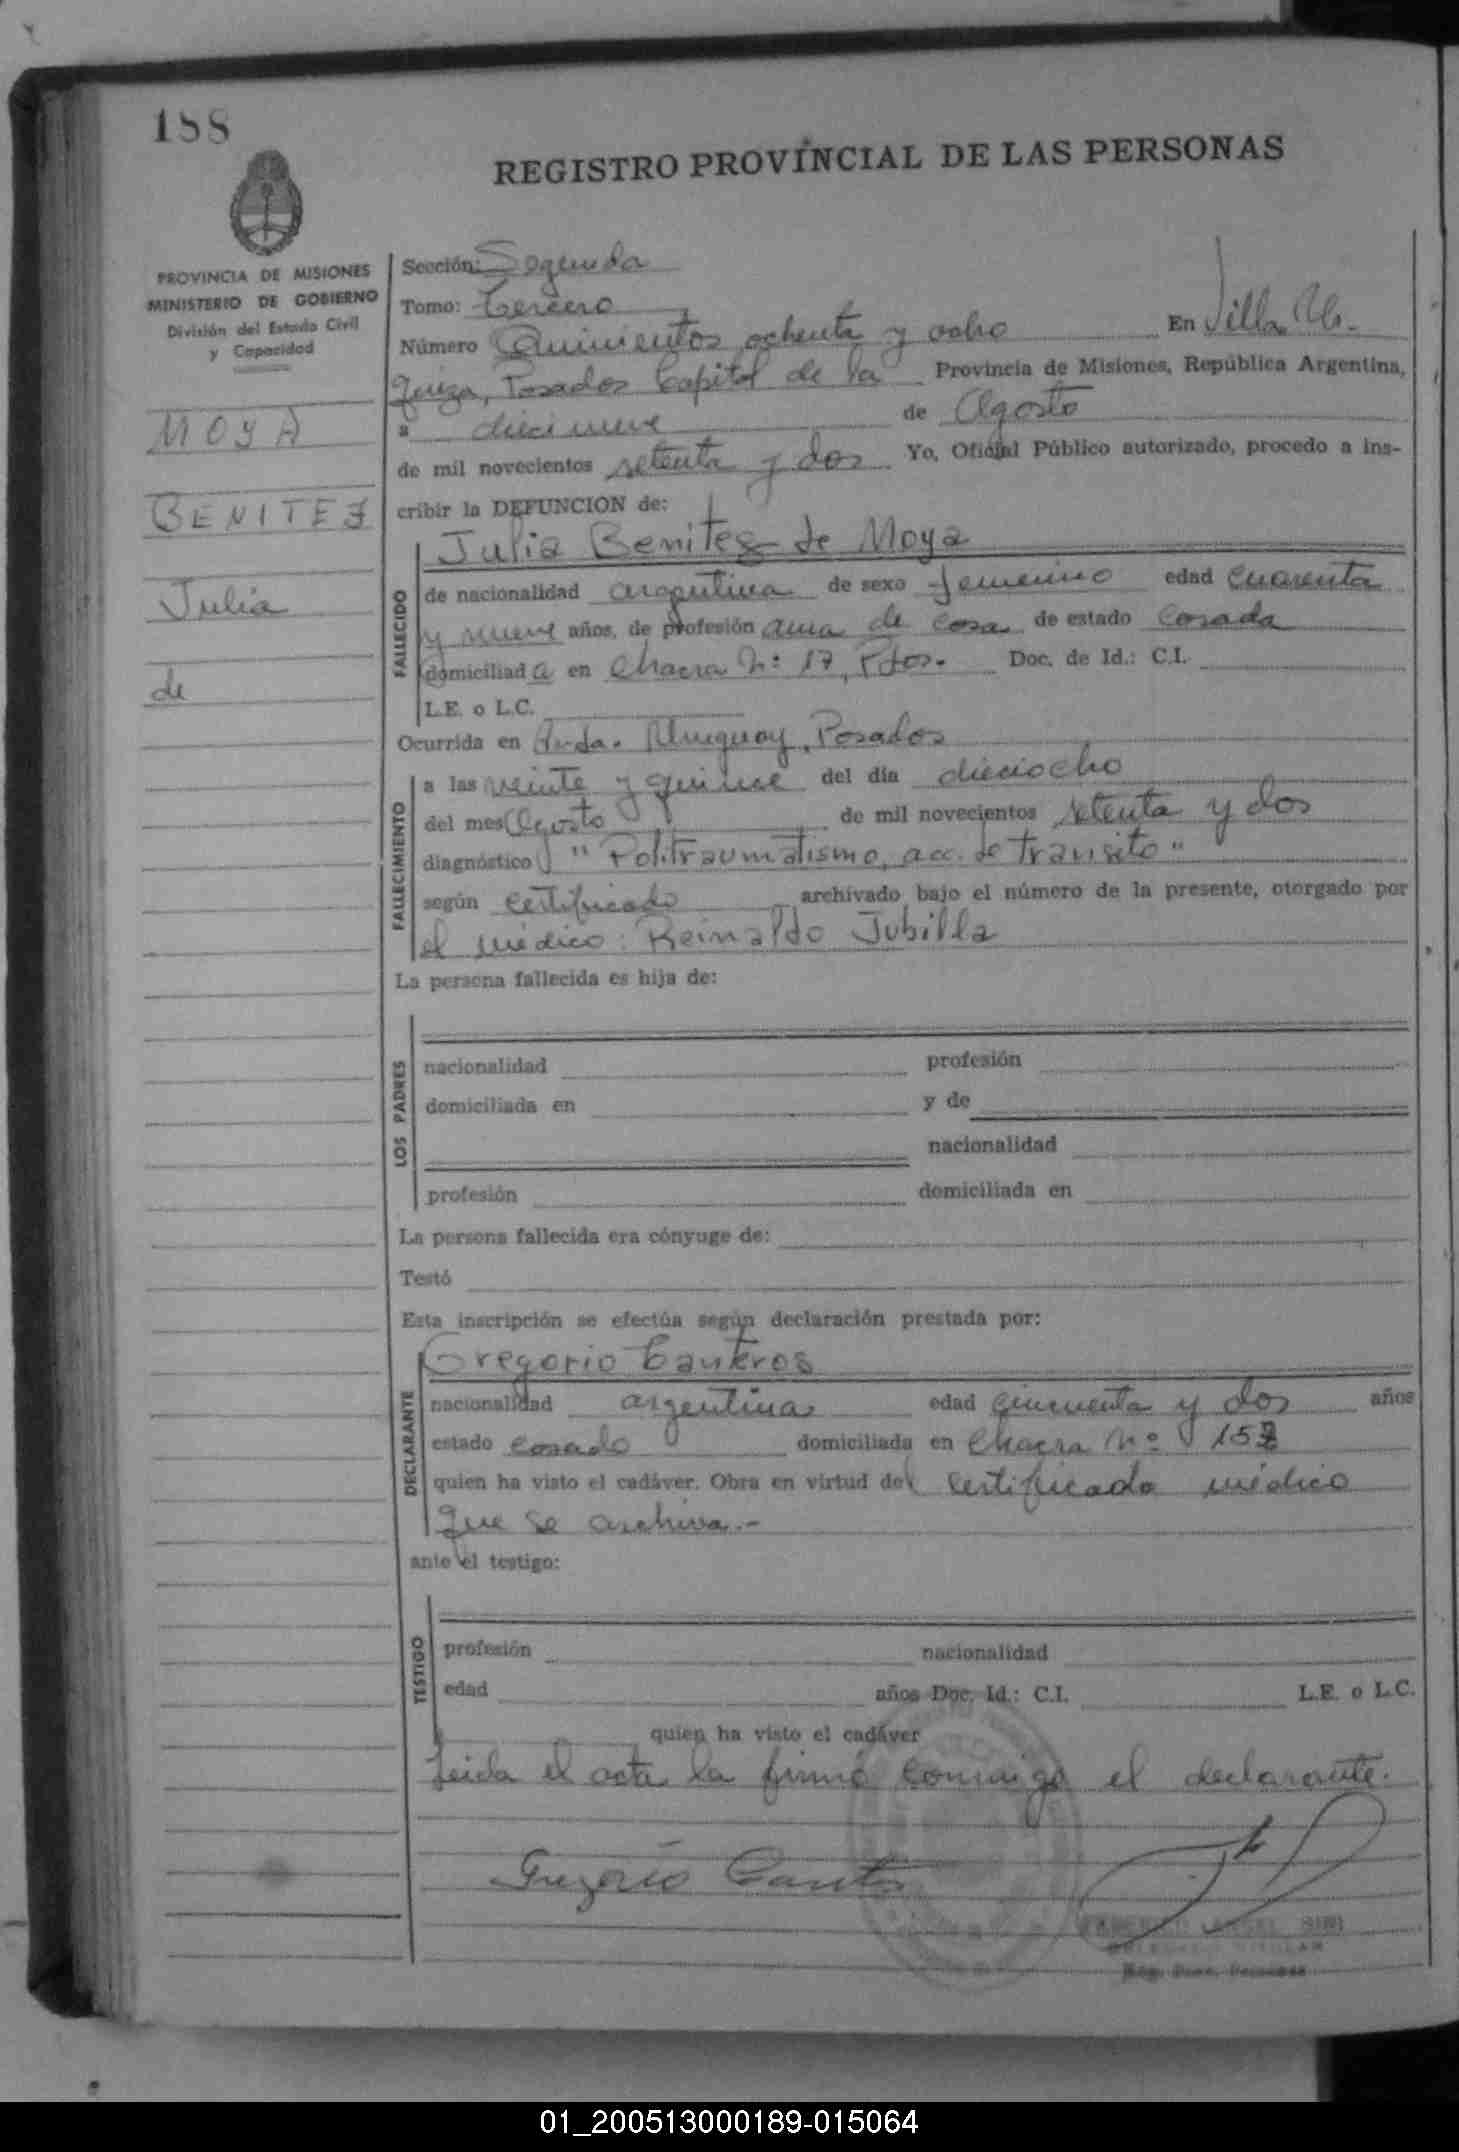 188
REGISTRO PROVINCIAL DE LAS PERSONAS
PROVINCIA DE MISIONES
MINISTERIO DE GOBIERNO
División del Estado Civil
y Capacidad
MOYA
BENITEZ
Julia
de
Sección: Segunda
Tomo: Tercero
Número Quinientos ochenta y ocho En Villa Ur-
quiza, Posadas Capital de la Provincia de Misiones, República Argentina,
a diecinueve de Agosto
de mil novecientos setenta y dos Yo, Oficial Público autorizado, procedo a ins-
cribir la DEFUNCION de:
FALLECIDO
Julia Benitez de Moya
de nacionalidad argentina de sexo femenino edad cuarenta
y nueve años, de profesión ama de casa de estado casada
domiciliada en Chacra Nº: 17, Pdas. Doc. de Id.: C.I.
L.E. o L.C.
Ocurrida en Avda. Uruguay, Posadas
FALLECIMIENTO
a las veinte y quince del día dieciocho
del mes Agosto de mil novecientos setenta y dos
diagnóstico "Politraumatismo, acc. de transito"
según certificado archivado bajo el número de la presente, otorgado por
el médico: Reinaldo Jubilla
La persona fallecida es hija de:
LOS PADRES
nacionalidad profesión
domiciliada en y de
nacionalidad
profesión domiciliada en
La persona fallecida era cónyuge de:
Testó
Esta inscripción se efectúa según declaración prestada por:
DECLARANTE
Gregorio Canteros
nacionalidad argentina edad cincuenta y dos años
estado casado domiciliada en Chacra Nº 152
quien ha visto el cadáver. Obra en virtud del certificado médico
que se archiva.-
ante el testigo:
TESTIGO
profesión nacionalidad
edad años Doc. Id.: C.I. L.E. o L.C.
quien ha visto el cadáver
Leida el acta la firmó conmigo el declarante.
Gregorio
ANGEL
Reg. Prov. Personas
01_200513000189-015064